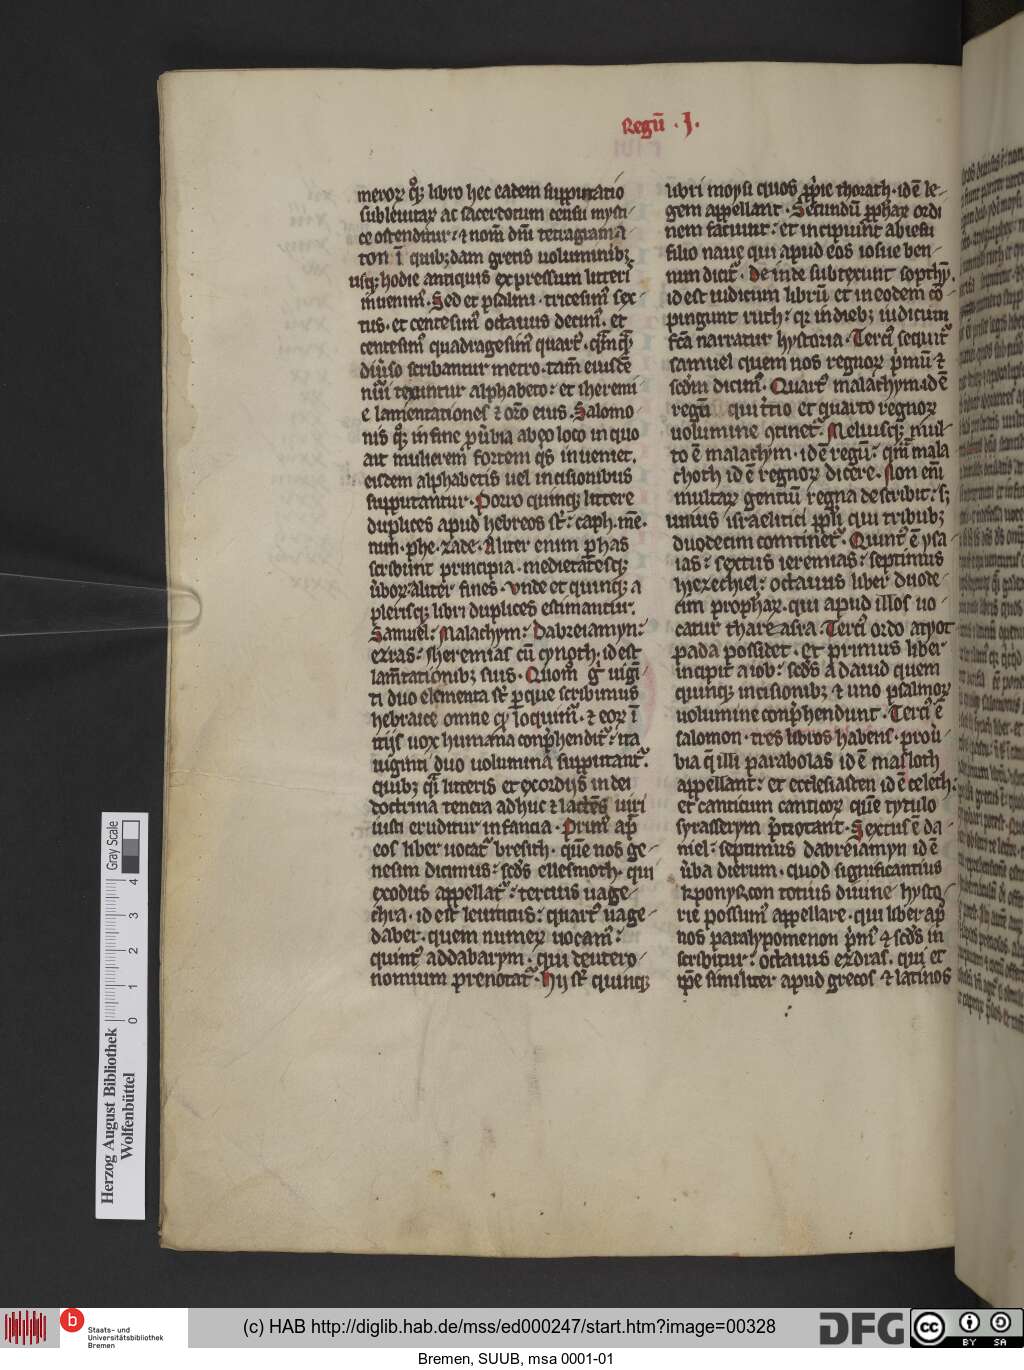 Regū . I.
meroꝝ qͦꝫ libro hec eadem supputatio
sub leuitaꝝ ac sacerdotum censu mysti-
ce ostenditur: ⁊ nom̄ dn̄i tetragrama-
ton ī quibꝫdam grecis uoluminibꝫ
usqꝫ hodie antiquis expressum litteris
inuenimꝰ. Sed et psalmi. tricesimꝰ sex-
tus. et centesimꝰ decimꝰ. et
centesimꝰ quadragesimꝰ quartꝰ. qͣmqͣm
diu̓so scribantur metro. tam̄ eiusdē
nūi texuntur alphabeto: et iheremi
e lamentationes ⁊ or̄o eius. Salomo-
nis qͦꝫ in fine pu̓bia ab eo loco in quo
ait mulierem fortem qͥs inueniet.
eisdem alphabetis uel incisionibus
supputantur. Porro quinqꝫ littere
duplices apud hebreos st̄: caph. mē.
nun. phe. zade. Aliter enim p has
scribunt principia. medietatesqꝫ
u̓boꝝ. aliter fines. Vnde et quinqꝫ a
plerisqꝫ libri duplices estimantur.
Samuel: Malachym: Dabreiamyn:
ezras: iheremias cū cynoth. id est
lam̄tationibꝫ suis. Quom̄ g̊ uigi-
ti duo elementa st̄ p que scribimus
hebraice omne qͩ loquimꝰ. ⁊ eoꝝ ī
itijs uox humana conp̄henditꝰ: ita
uiginti duo uolumina supputantꝰ.
quibꝫ qͣi litteris et exordijs in dei
doctrina tenera adhuc ⁊ lactēs uiri
iusti eruditur infancia. Primꝰ ap̄
eos liber uocatꝰ bresith. quē nos ge-
nesim dicimus: scd̄s ellesmoth. qui
exodus appellatꝰ: tercius uage-
chra. id est leuiticus: quartꝰ uage-
daber. quem numeꝝ uocamꝰ:
quintꝰ addabarym. qui deutero-
nomium prenotatꝰ. Hij st̄ quinqꝫ
libri moysi quos ꝓpͥe thorath. id ē le-
gem appellant. Secundū ꝓphaꝝ ordi
nem faciunt: et incipiunt ab iesu
filio naue qui apud eos iosue ben-
nun dicitꝰ. Deinde subtexunt sopthyꝫ.
id est iudicum librū et in eodem cō-
pingunt ruth: qꝛ in diebꝫ iudicum
fc̄a narratur hystoria. Tercꝰ sequitꝰ
samuel quem nos regnoꝝ pͥmū ⁊
scd̄m dicimꝰ. Quartꝰ malachym. id ē
regū qui tͥtio et quarto regnoꝝ
uolumine ꝯtinetꝰ. Meliusqꝫ mul-
to ē malachym. id ē regū: qͣm mala
choth id ē regnoꝝ dicere. Non eni
multaꝝ gentiū regna describit: sꝫ
unius israelitici ppl̓i qui tribubꝫ
duodecim continetꝰ. Quintꝰ ē ysa-
ias: sextus ieremias: septimus
hiezechiel: octauus liber duode-
cim prophaꝝ. qui apud illos uo-
catur thare asra. Tercꝰ ordo agyot
pada possidet. et primus liber
incipit a iob: scd̄s a dauid quem
quinqꝫ incisionibꝫ ⁊ uno psalmoꝝ
uolumine conp̄hendunt. Tercꝰ ē
salomon. tres libros habens. prou̓-
bia q̄ illi parabolas id ē masloth
appellant: et ecclesiasten id ē celeth:
et canticum canticoꝝ quē tytulo
syrasserym p̄notant. Sextus ē da-
niel: septimus dabreiamyn id ē
u̓ba dierum. quod significantius
kponykon totius diuine hysto-
rie possumꝰ appellare. qui liber ap̄
nos paralypomenon pͥmꝰ ⁊ scd̄s in
scribitur: octauus ezdras. qui et
ip̄e similiter apud grecos ⁊ latinos
Gray Scale
0 1 2 3 4
Herzog August Bibliothek
Wolfenbüttel
b Staats- und
Universitätsbibliothek
Bremen
(c) HAB http://diglib.hab.de/mss/ed000247/start.htm?image=00328
DFG
cc BY SA
Bremen, SUUB, msa 0001-01